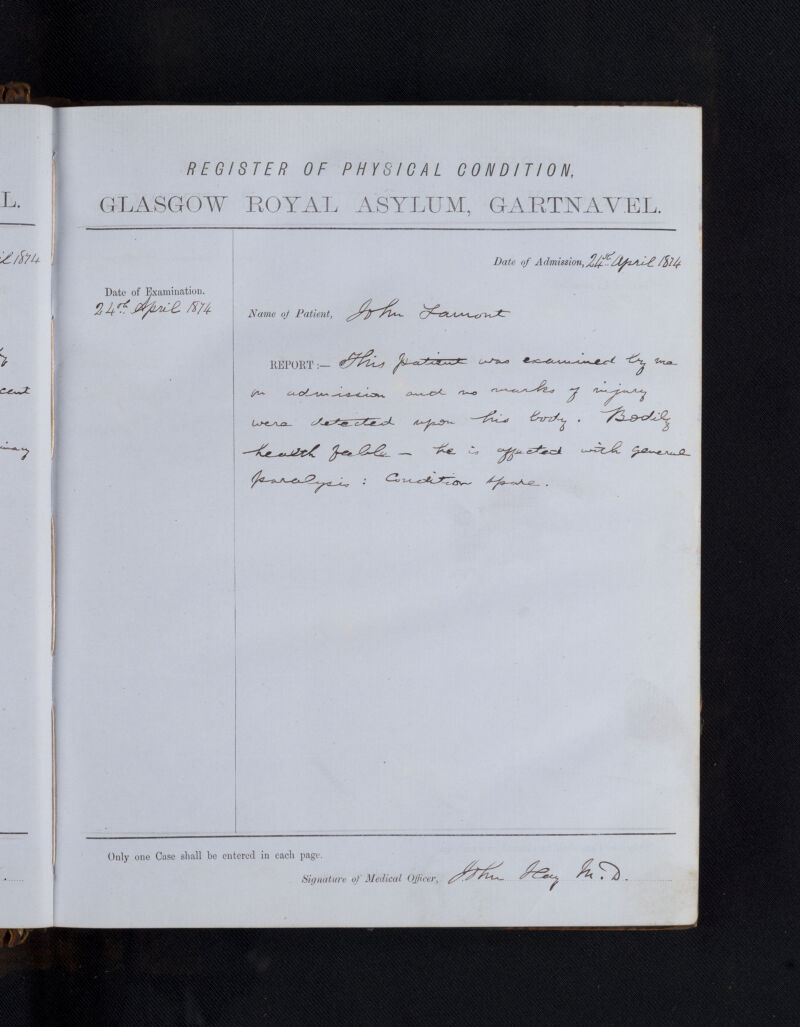 REGISTER OF PHYSICAL CONDITION,
GLASGOW ROYAL ASYLUM, GARTNAVEL.
L.
1874
Date of Admission, 24th April 1874
Date of Examination.
24th April 1874
Name of Patient, John Lamont
REPORT:— This patient was examined by me
on admission and no marks of injury
were detected upon his body. Bodily
health feeble — he is affected with general
paralysis: Condition spare.
Only one Case shall be entered in each page.
Signature of Medical Officer, John Hay M.D.